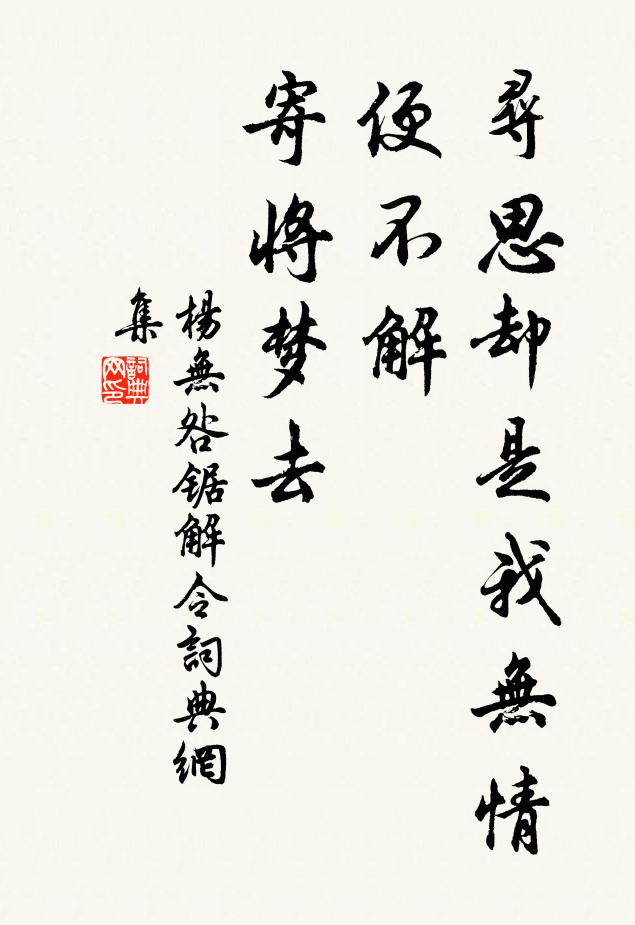 尋思却是我無情
便不解
寄將梦去
楊無咎锯解令詞典網
集
詞典
网印